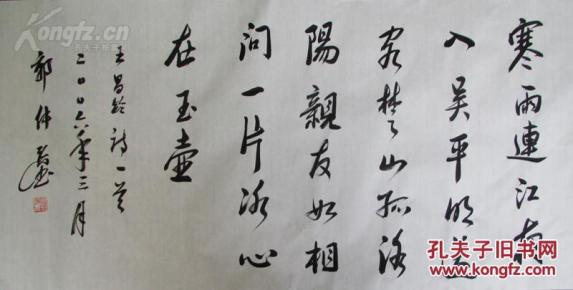 寒雨連江夜
入吴平明送
客楚山孤洛
陽親友如相
問一片冰心
在玉壶
王昌龄诗一首
二〇〇六年三月
Kongfz.cn
孔夫子拍卖网
孔夫子旧书网
www.kongfz.com